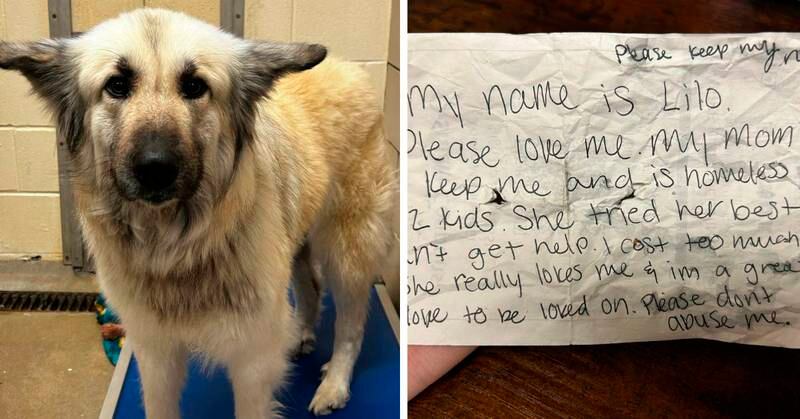 Please keep my
My name is Lilo.
Please love me. My mom
keep me and is homeless
2 kids. She tried her best
n't get help. I cost too much
he really loves me & im a grea
love to be loved on. Please don't
abuse me.